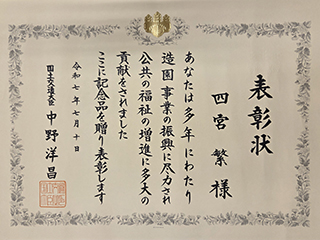 表彰状
四宮 繁 様
あなたは多年にわたり
造園事業の振興に尽力され
公共の福祉の増進に多大の
貢献をされました
ここに記念品を贈り表彰します
令和七年七月十日
国土交通大臣 中野洋昌